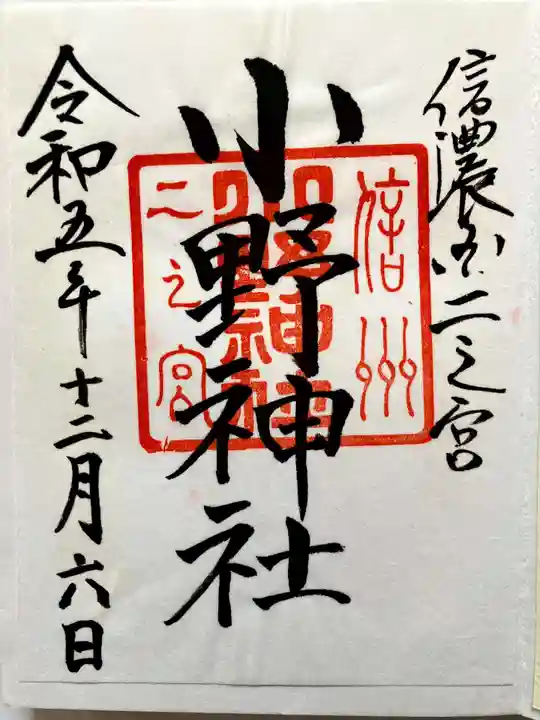 信濃国二之宮
小野神社
信州
二之宮
令和五年十二月六日